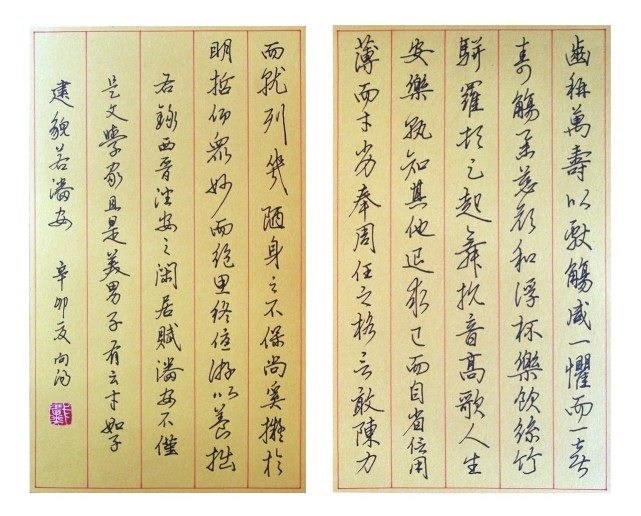 齒稱萬壽以獻觴咸一懼而一喜
壽觴舉慈顏和浮杯樂飲絲竹
駢羅頓足起舞抗音高歌人生
安樂孰知其他退求己而自省信用
薄而才劣奉周任之格言敢陳力
而就列幾陋身之不保尚奚擬於
明哲仰眾妙而絕思終優游以養拙
右錄西晉潘安之閑居賦潘安不僅
是文學家且是美男子有云才如子
建貌若潘安 辛卯夏向